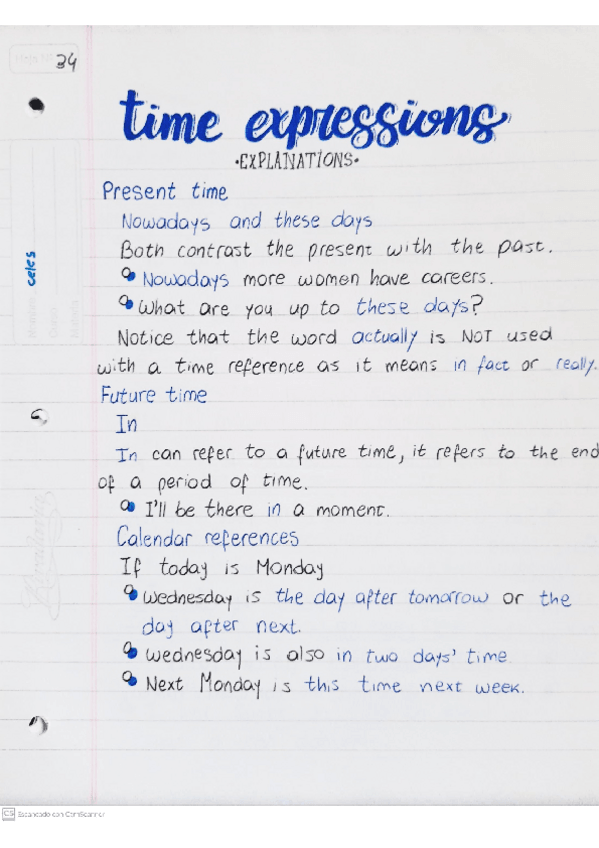 34
time expressions
•EXPLANATIONS•
Present time
Nowadays and these days
Both contrast the present with the past.
Nowadays more women have careers.
What are you up to these days?
Notice that the word actually is NOT used
with a time reference as it means in fact or really.
Future time
In
In can refer to a future time, it refers to the end
of a period of time.
I'll be there in a moment.
Calendar references
If today is Monday
Wednesday is the day after tomorrow or the
day after next.
Wednesday is also in two days' time
Next Monday is this time next week.
celes
CS Escaneado con CamScanner